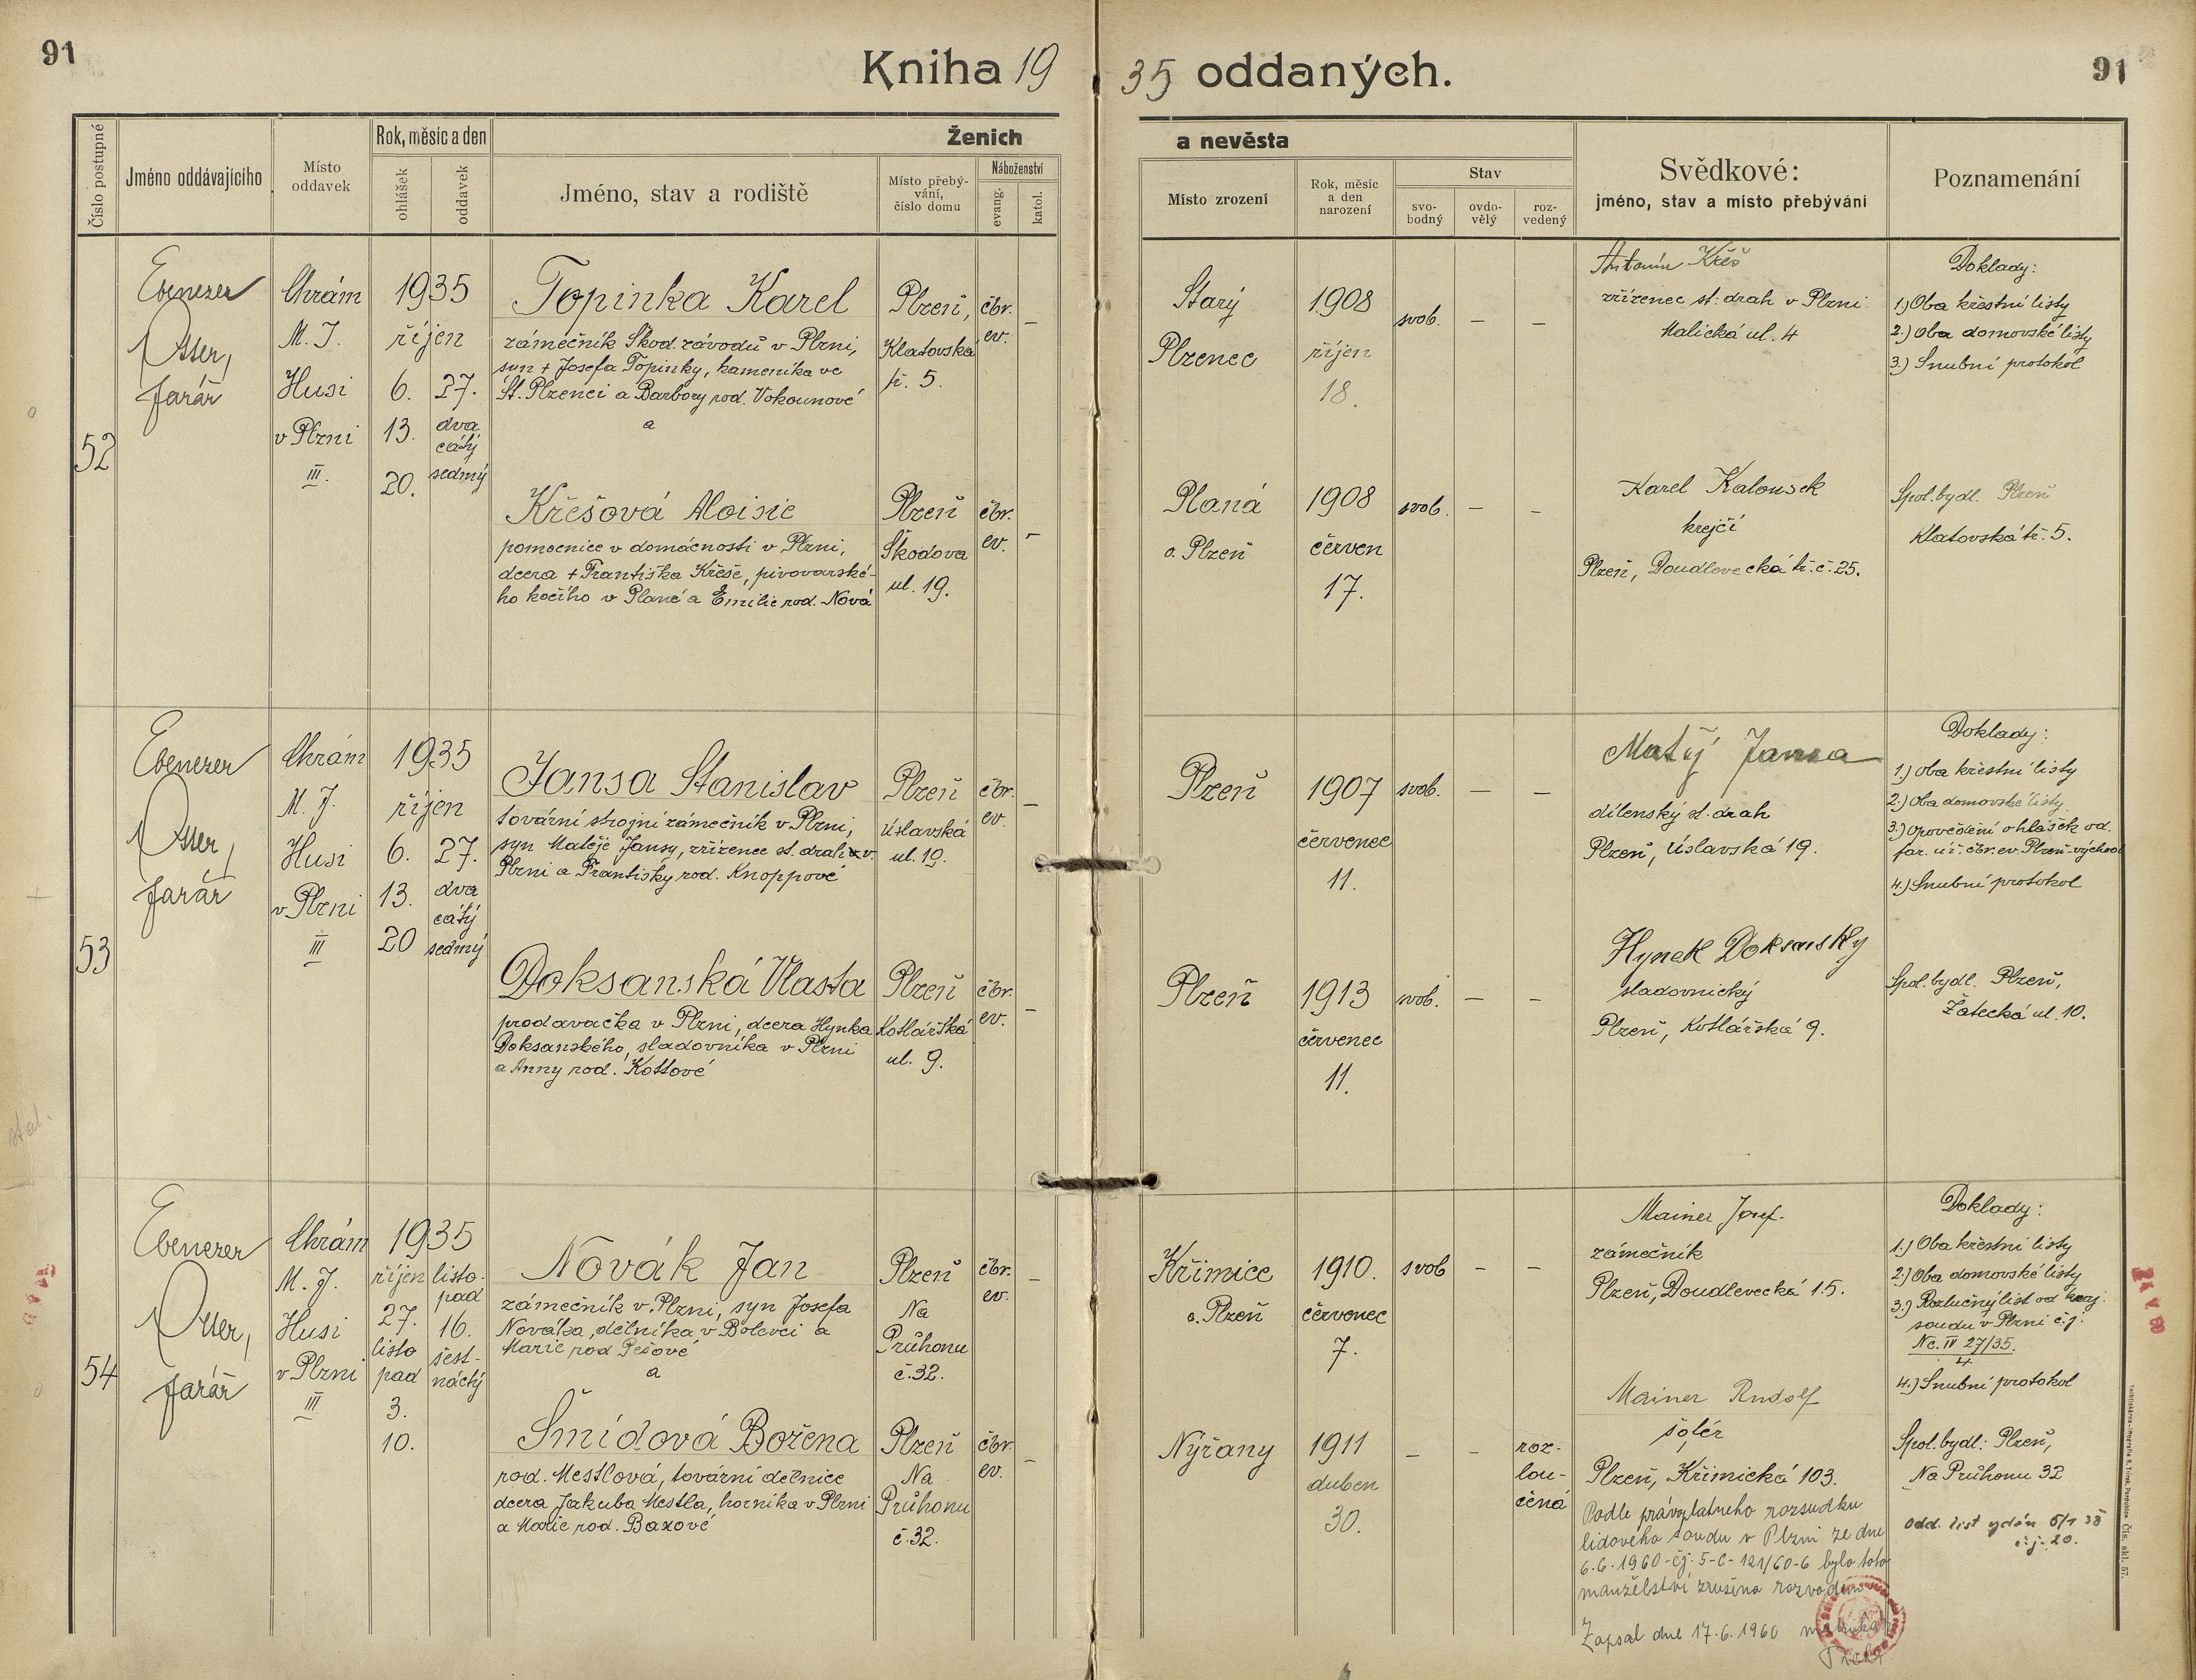 91
Kniha 19 35 oddaných.
91
Číslo postupné
Jméno oddávajícího
Místo
oddavek
Rok, měsíc a den
ohlášek
oddavek
Ženich
a nevěsta
Jméno, stav a rodiště
Místo přebý-
vání,
číslo domu
Náboženství
evang.
katol.
Místo zrození
Rok, měsíc
a den
narození
Stav
svo-
bodný
ovdo-
vělý
roz-
vedený
Svědkové:
jméno, stav a místo přebývání
Poznamenání
52
Ebenezer
Otter,
farář
Chrám
M. J.
Husi
v Plzni
III.
1935
říjen
6.
13.
20.
27.
dva
cátý
sedmý
Topinka Karel
zámečník Škod. závodů v Plzni,
syn + Josefa Topinky, kameníka ve
St. Plzenci a Barbory rod. Vokounové
a
Plzeň,
Klatovská
tř. 5.
čbr.
ev.
–
Starý
Plzenec
1908
říjen
18.
svob.
–
–
Antonín Křeš
zřízenec st. drah v Plzni
Malická ul. 4
Doklady:
1.) Oba křestní listy
2.) Oba domovské listy
3.) Snubní protokol
Křešová Aloisie
pomocnice v domácnosti v Plzni,
dcera + Františka Křeše, pivovarské-
ho kočího v Plané a Emilie rod. Nová
Plzeň
Škodova
ul. 19.
čbr.
ev.
–
Planá
o. Plzeň
1908
červen
17.
svob.
–
–
Karel Kalousek
krejčí
Plzeň, Doudlevecká tř. č. 25.
Spol. bydl. Plzeň
Klatovská tř. 5.
53
Ebenezer
Otter,
farář
Chrám
M. J.
Husi
v Plzni
III
1935
říjen
6.
13.
20
27.
dva
cátý
sedmý
Jansa Stanislav
tovární strojní zámečník v Plzni,
syn Matěje Jansy, zřízence st. drah v
Plzni a Františky rod. Knoppové
Plzeň
Úslavská
ul. 19.
čbr.
ev.
–
Plzeň
1907
červenec
11.
svob.
–
–
Matěj Jansa
dílenský st. drah
Plzeň, Úslavská 19.
Doklady:
1.) Oba křestní listy
2.) Oba domovské listy
3.) Opovědění ohlášek od.
far. úř. čbr. ev. Plzeň-východ
4.) Snubní protokol
Doksanská Vlasta
prodavačka v Plzni, dcera Hynka
Doksanského, sladovníka v Plzni
a Anny rod. Kottové
Plzeň
Kotlářská
ul. 9.
čbr.
ev.
–
Plzeň
1913
červenec
11.
svob.
–
–
Hynek Doksanský
sladovnický
Plzeň, Kotlářská 9.
Spol. bydl. Plzeň,
Žatecká ul. 10.
54
Ebenezer
Otter,
farář
Chrám
M. J.
Husi
v Plzni
III
1935
říjen
27.
listo
pad
3.
10.
listo-
pad
16.
šest-
náctý
Novák Jan
zámečník v Plzni, syn Josefa
Nováka, dělníka v Bolevci a
Marie rod Pešové
a
Plzeň
Na
Průhonu
č. 32.
čbr.
ev.
–
Křimice
o. Plzeň
1910.
červenec
7.
svob
–
–
Mainer Josef.
zámečník
Plzeň, Doudlevecká 15.
Doklady:
1.) Oba křestní listy
2.) Oba domovské listy
3.) Rozlučný list od kraj.
soudu v Plzni č. j.
Nc. IV 27/35.
4
4.) Snubní protokol
Šmídová Božena
rod. Mestlová, tovární dělnice
dcera Jakuba Mestla, horníka v Plzni
a Marie rod. Baxové
Plzeň
Na
Průhonu
č. 32.
čbr.
ev.
–
Nýřany
1911
duben
30.
–
–
roz-
lou-
čená
Mainer Rudolf
šofér
Plzeň, Křimická 103.
Spol. bydl.: Plzeň,
Na Průhonu 32
Podle právoplatného rozsudku
lidového soudu v Plzni ze dne
6.6.1960 - čj. 5-C-121/60-6 bylo toto
manželství zrušeno rozvodem
Zapsal dne 17.6.1960
Odd. list vydán 5/1 38
č. j. 20.
stal.
Čís. skl. 57.